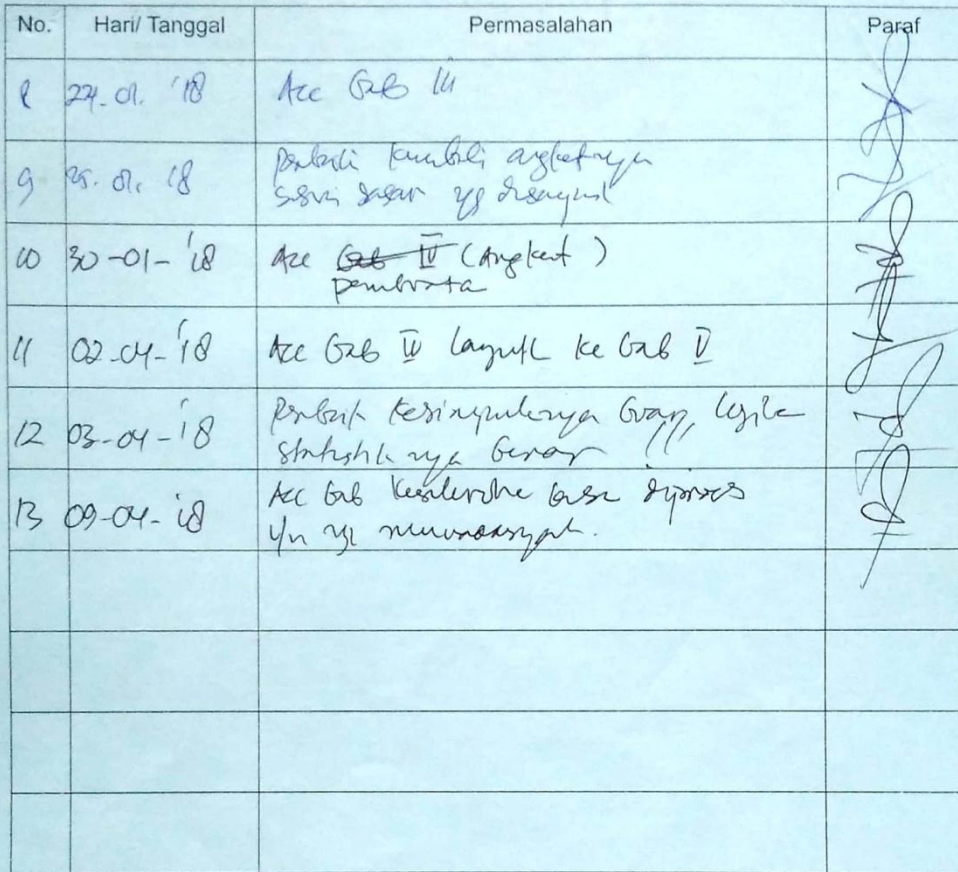 No. Hari/ Tanggal Permasalahan Paraf
8 24-01. '18 Acc Bab III
9 25. 01. '18 Perbaiki kembali angketnya
sesuai saran yg
10 30-01-'18 Acc Bab IV (Angket)
11 02-04-'18 Acc Bab IV lanjut ke Bab V
12 03-04-'18 Perbaiki kesimpulannya
statistiknya benar
13 09-04-'18 Acc Bab keseluruhan bisa diproses